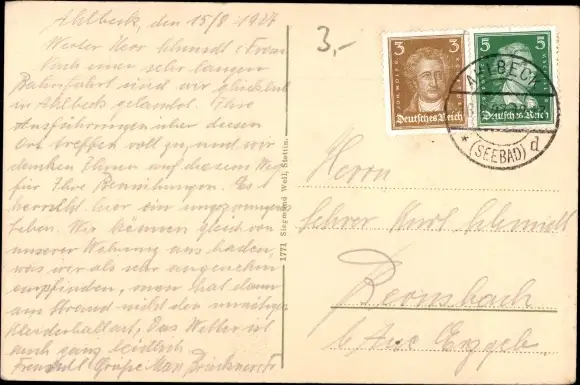 Ahlbeck, den 15/8 1927
Werter Herr Schmidt u. Frau
Nach einer sehr langen
Bahnfahrt sind wir glücklich
in Ahlbeck gelandet. Ihre
Ausführungen über diesen
Ort treffen voll zu, und wir
danken Ihnen auf diesem Wege
für Ihre Bemühungen. Es
herrscht hier ein ungezwungenes
Leben. Wir können gleich von
unserer Wohnung aus baden,
was wir als sehr angenehm
empfinden, man hat dann
am Strand nicht den unnötigen
Kleiderballast. Das Wetter ist
auch ganz leidlich
Freundl. Grüße Max Brückner u. Fr
3,-
3 3
JOH. WOLFG.
Deutsches Reich
5 5
Deutsches Reich
AHLBECK
* (SEEBAD) d
1771 Siegmund Weil, Stettin.
Herrn
Lehrer Kurt Schmidt
Bernsbach
b/ Aue Erzgeb.